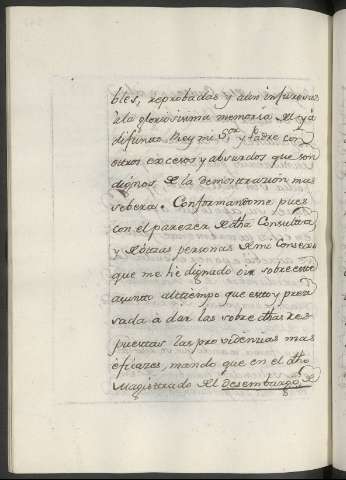 bles, reprobadas y aun injuriosas
à la gloriosisima memoria del yà
difunto Rey mi S.or y Padre con
otros excesos y absurdos que son
dignos de la demonstrazion mas
sebera. Conformandome pues
con el parezer de dha Consulta
y de otras personas de mi Consexo
que me hè dignado oir sobre este
asunto al tiempo que estoy preci
sada à dar las sobre dhas res
puestas las providencias mas
eficazes, mando que en el dho
Magistrado del Desembargo de